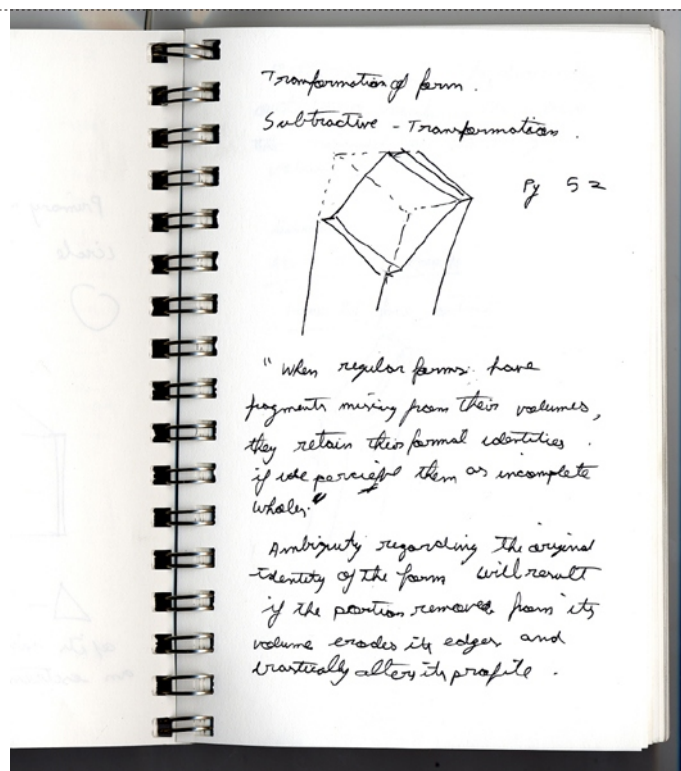 Transformation of form.
Subtractive - Transformation.
Pg 52
"When regular forms have
fragments missing from their volumes,
they retain their formal identities
if we perceive them as incomplete
wholes."
Ambiguity regarding the original
identity of the form will result
if the portion removed from its
volume erodes its edges and
drastically alters its profile.